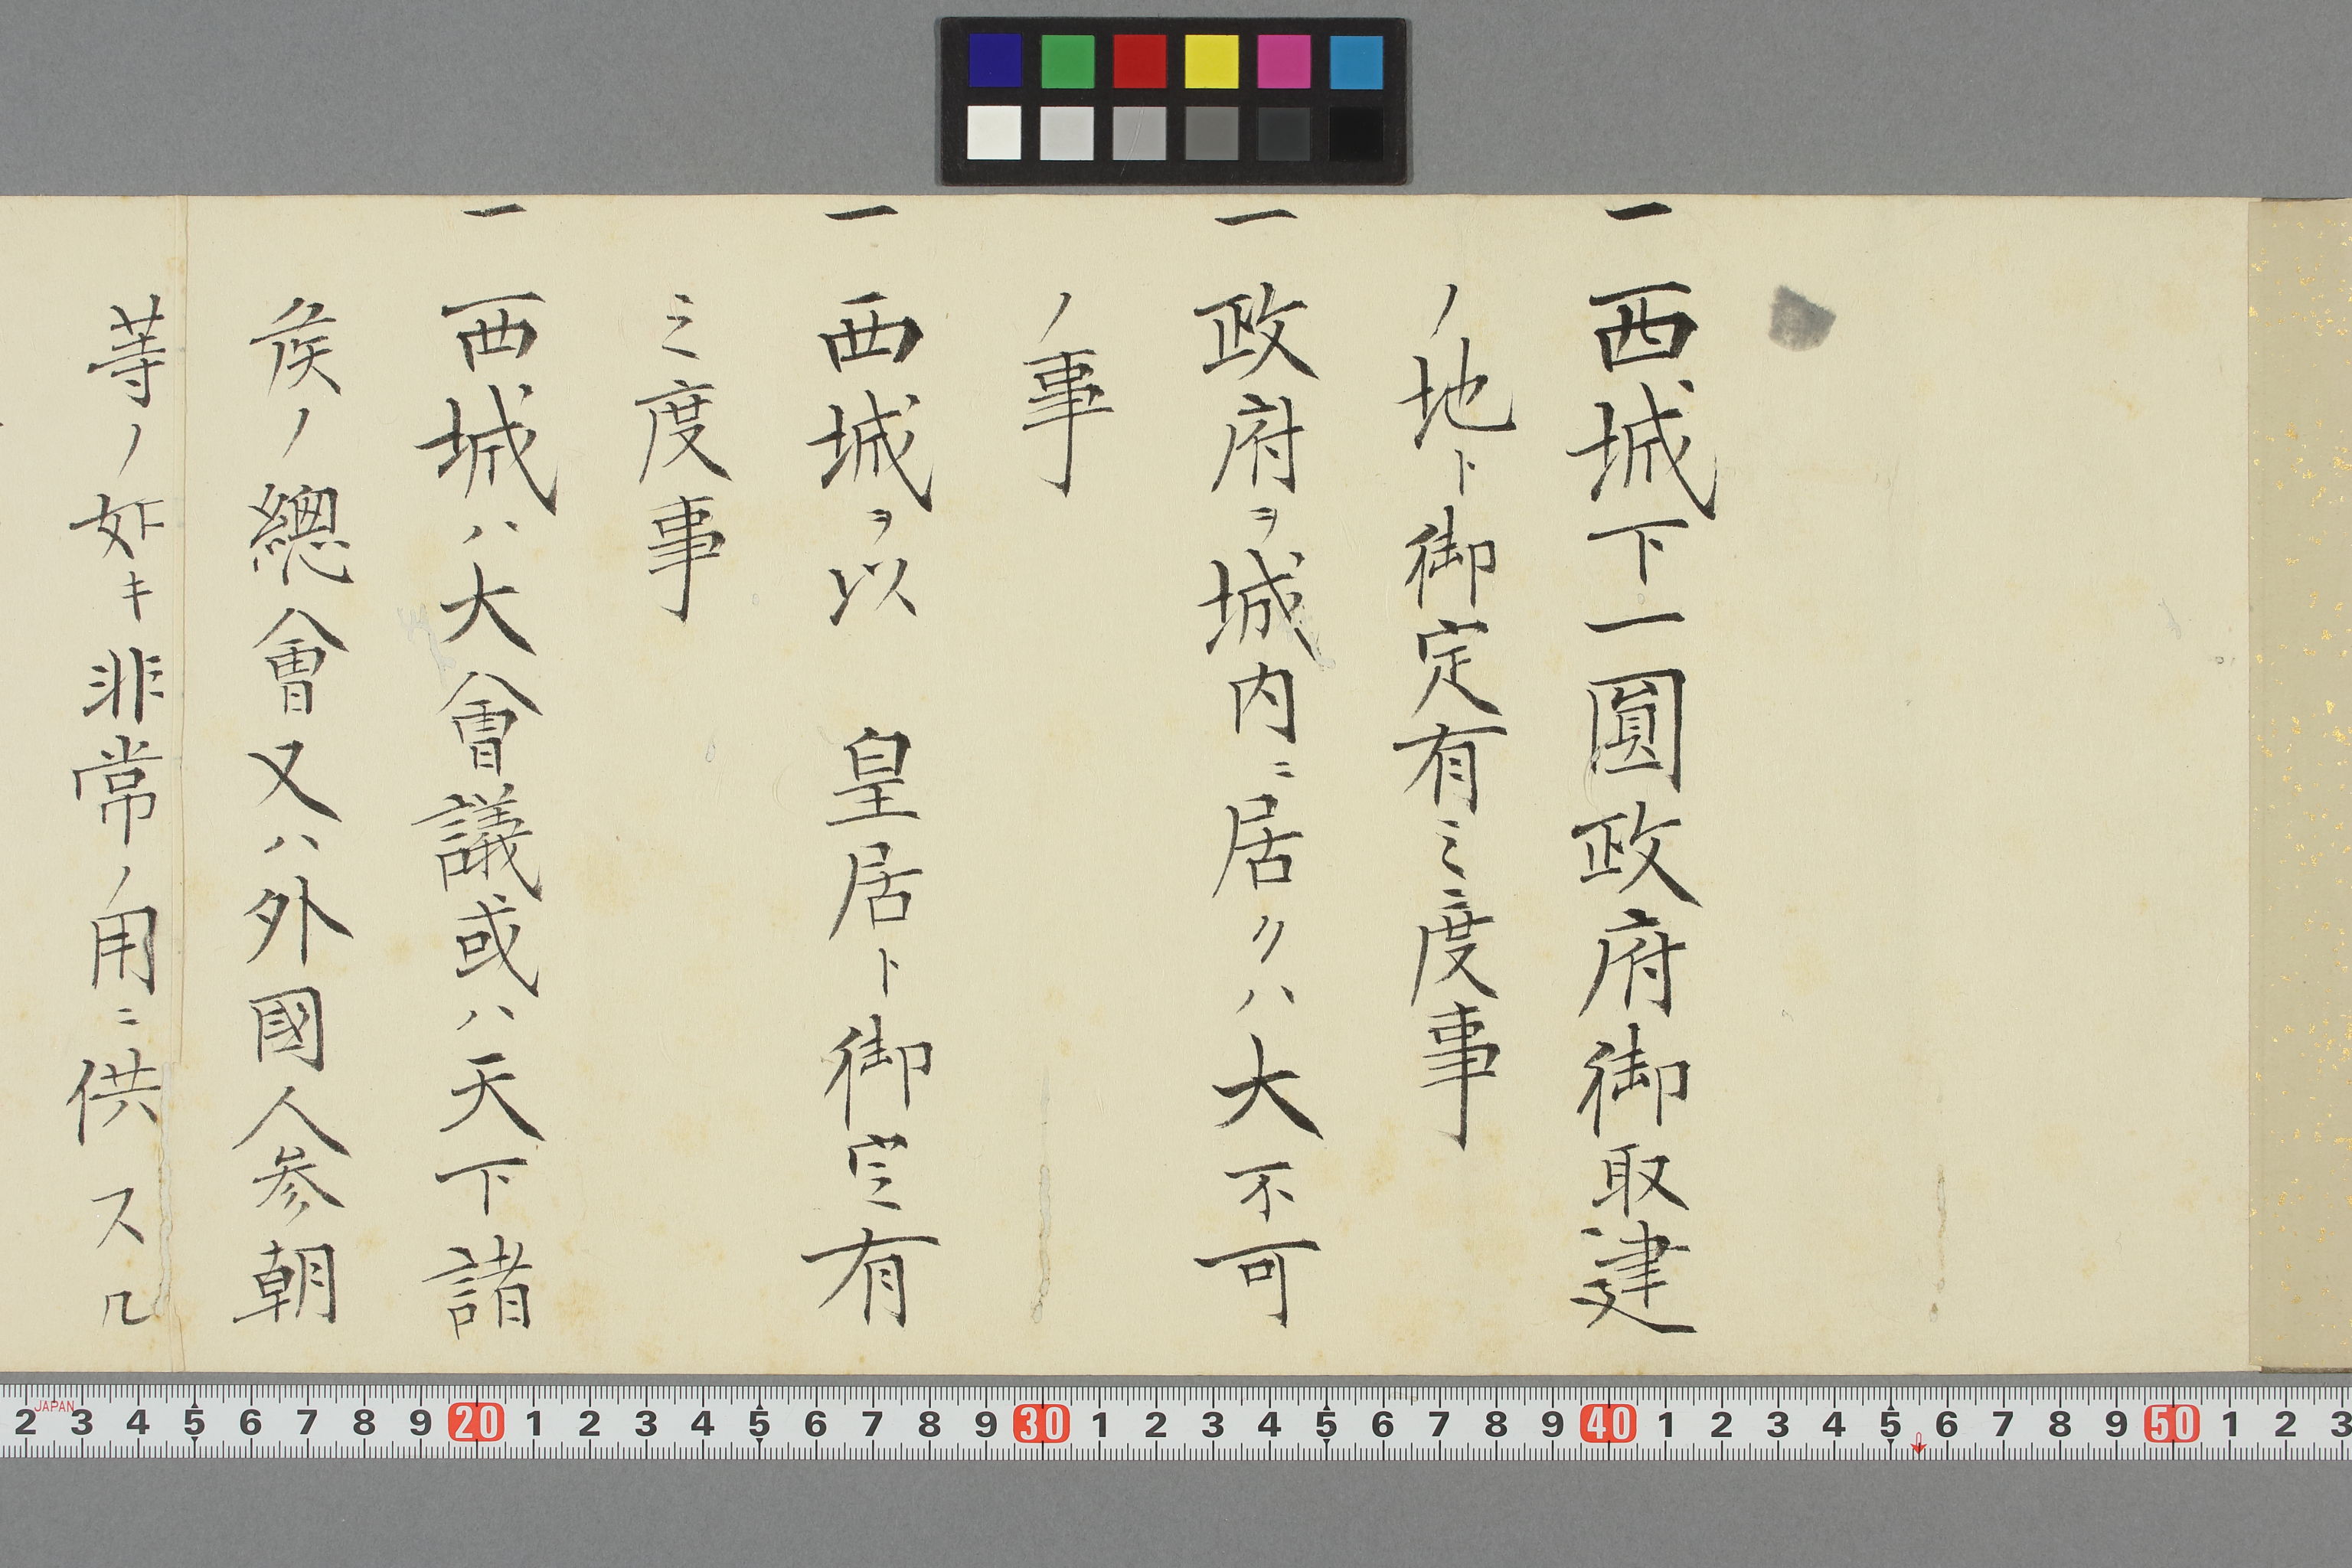 一西城下一圓政府御取建
ノ地ト御定有ミニ度事
一政府ヲ城内ニ居クハ大不可
ノ事
一西城ヲ以　皇居ト御定有
ミ度事
一西城ハ大會議或ハ天下諸
矦ノ總會又ハ外國人参朝
等ノ如キ非常ノ用ニ供スル
2 JAPAN 3 4 5 6 7 8 9 20 1 2 3 4 5 6 7 8 9 30 1 2 3 4 5 6 7 8 9 40 1 2 3 4 5 6 7 8 9 50 1 2 3